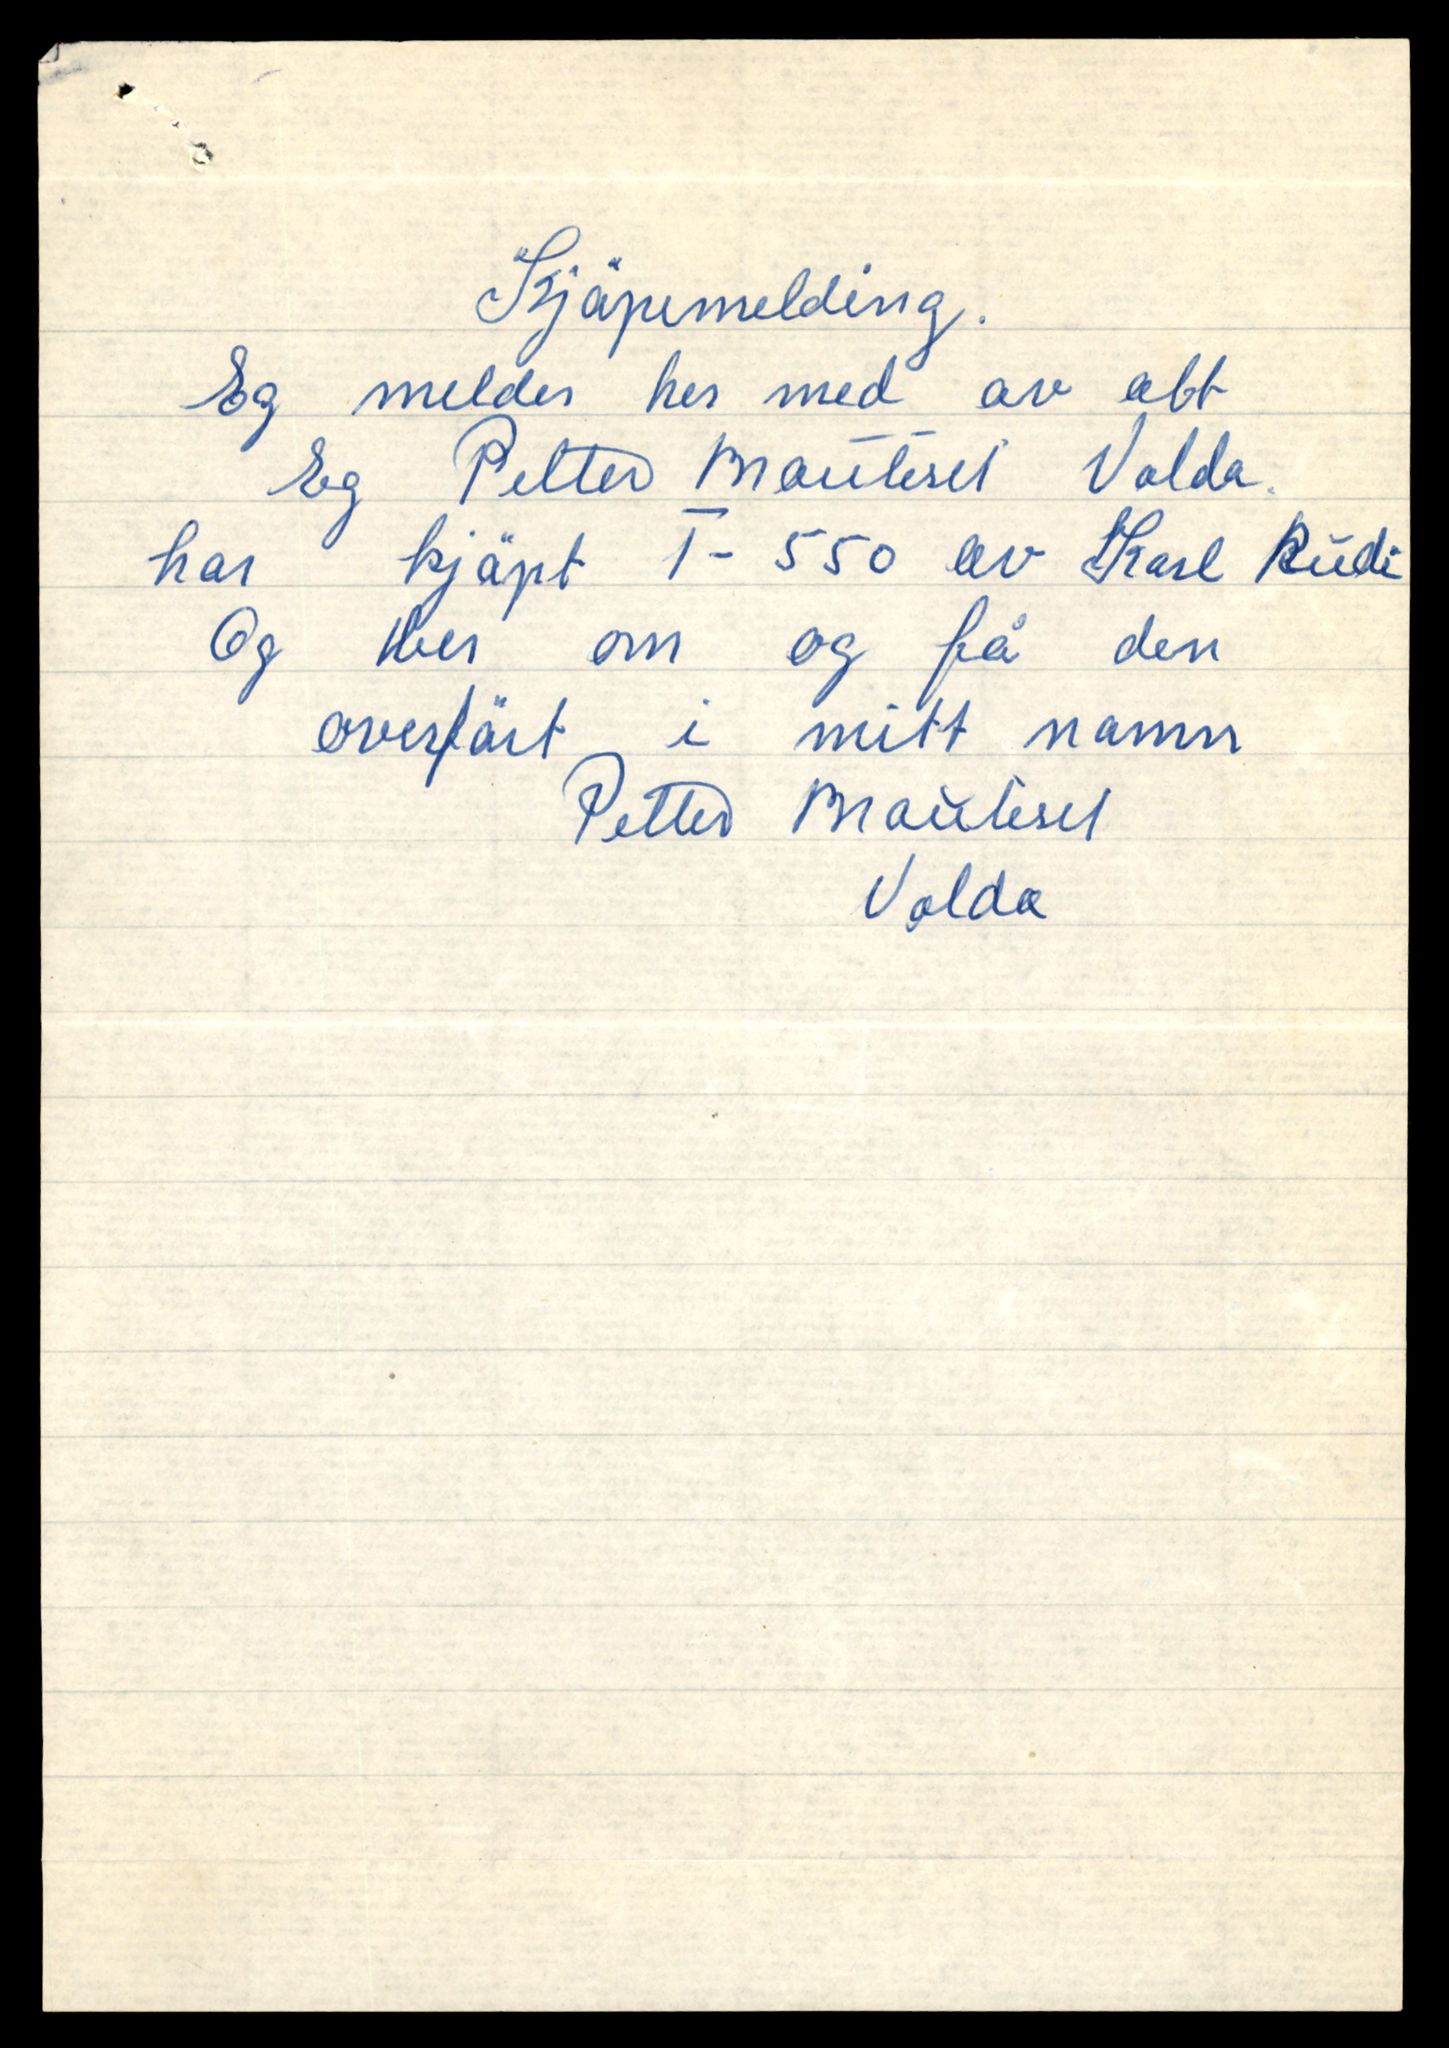 Kjöpemelding.
Eg melder her med av att
Eg Petter Brauteset Volda.
har kjöpt T- 550 av Karl Rudi
Og ber om og få den
overfört i mitt namn
Petter Brauteset
Volda